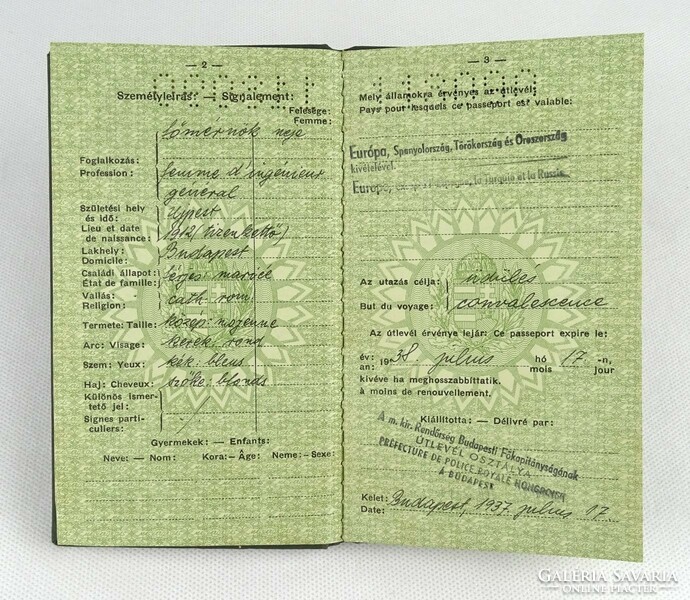 — 2 —
Személyleírás: — Signalement:
Felesége:
Femme:
főmérnök neje
Foglalkozás:
Profession:
femme d'ingénieur
general
Születési hely
és idő:
Lieu et date
de naissance:
Ujpest
1912 (tizenkettő)
Lakhely:
Domicile:
Budapest
Családi állapot:
État de famille:
férjes: mariée
Vallás:
Religion:
cath. rom.
Termete: Taille:
közép: moyenne
Arc: Visage:
kerek: rond
Szem: Yeux:
kék: bleus
Haj: Cheveux:
szőke: blonds
Különös ismer-
tető jel:
Signes parti-
culiers:
Gyermekek: — Enfants:
Neve: — Nom: Kora: — Âge: Neme: — Sexe:
— 3 —
Mely államokra érvényes az útlevél:
Pays pour lesquels ce passeport est valable:
Európa, Spanyolország, Törökország és Oroszország
kivételével.
Europe, la Turquie et la Russie.
Az utazás célja:
But du voyage:
üdülés
convalescence
Az útlevél érvénye lejár: Ce passeport expire le:
év: an: 1938 július hó mois 17 -n, jour
kivéve ha meghosszabbíttatik.
à moins de renouvellement.
Kiállította: — Délivré par:
A m. kir. Rendőrség Budapesti Főkapitányságának
ÚTLEVÉL OSZTÁLYA
PRÉFECTURE DE POLICE ROYALE HONGROISE
À BUDAPEST
Kelet:
Date:
Budapest, 1937. július 17.
GALÉRIA SAVARIA
ONLINE PIACTÉR